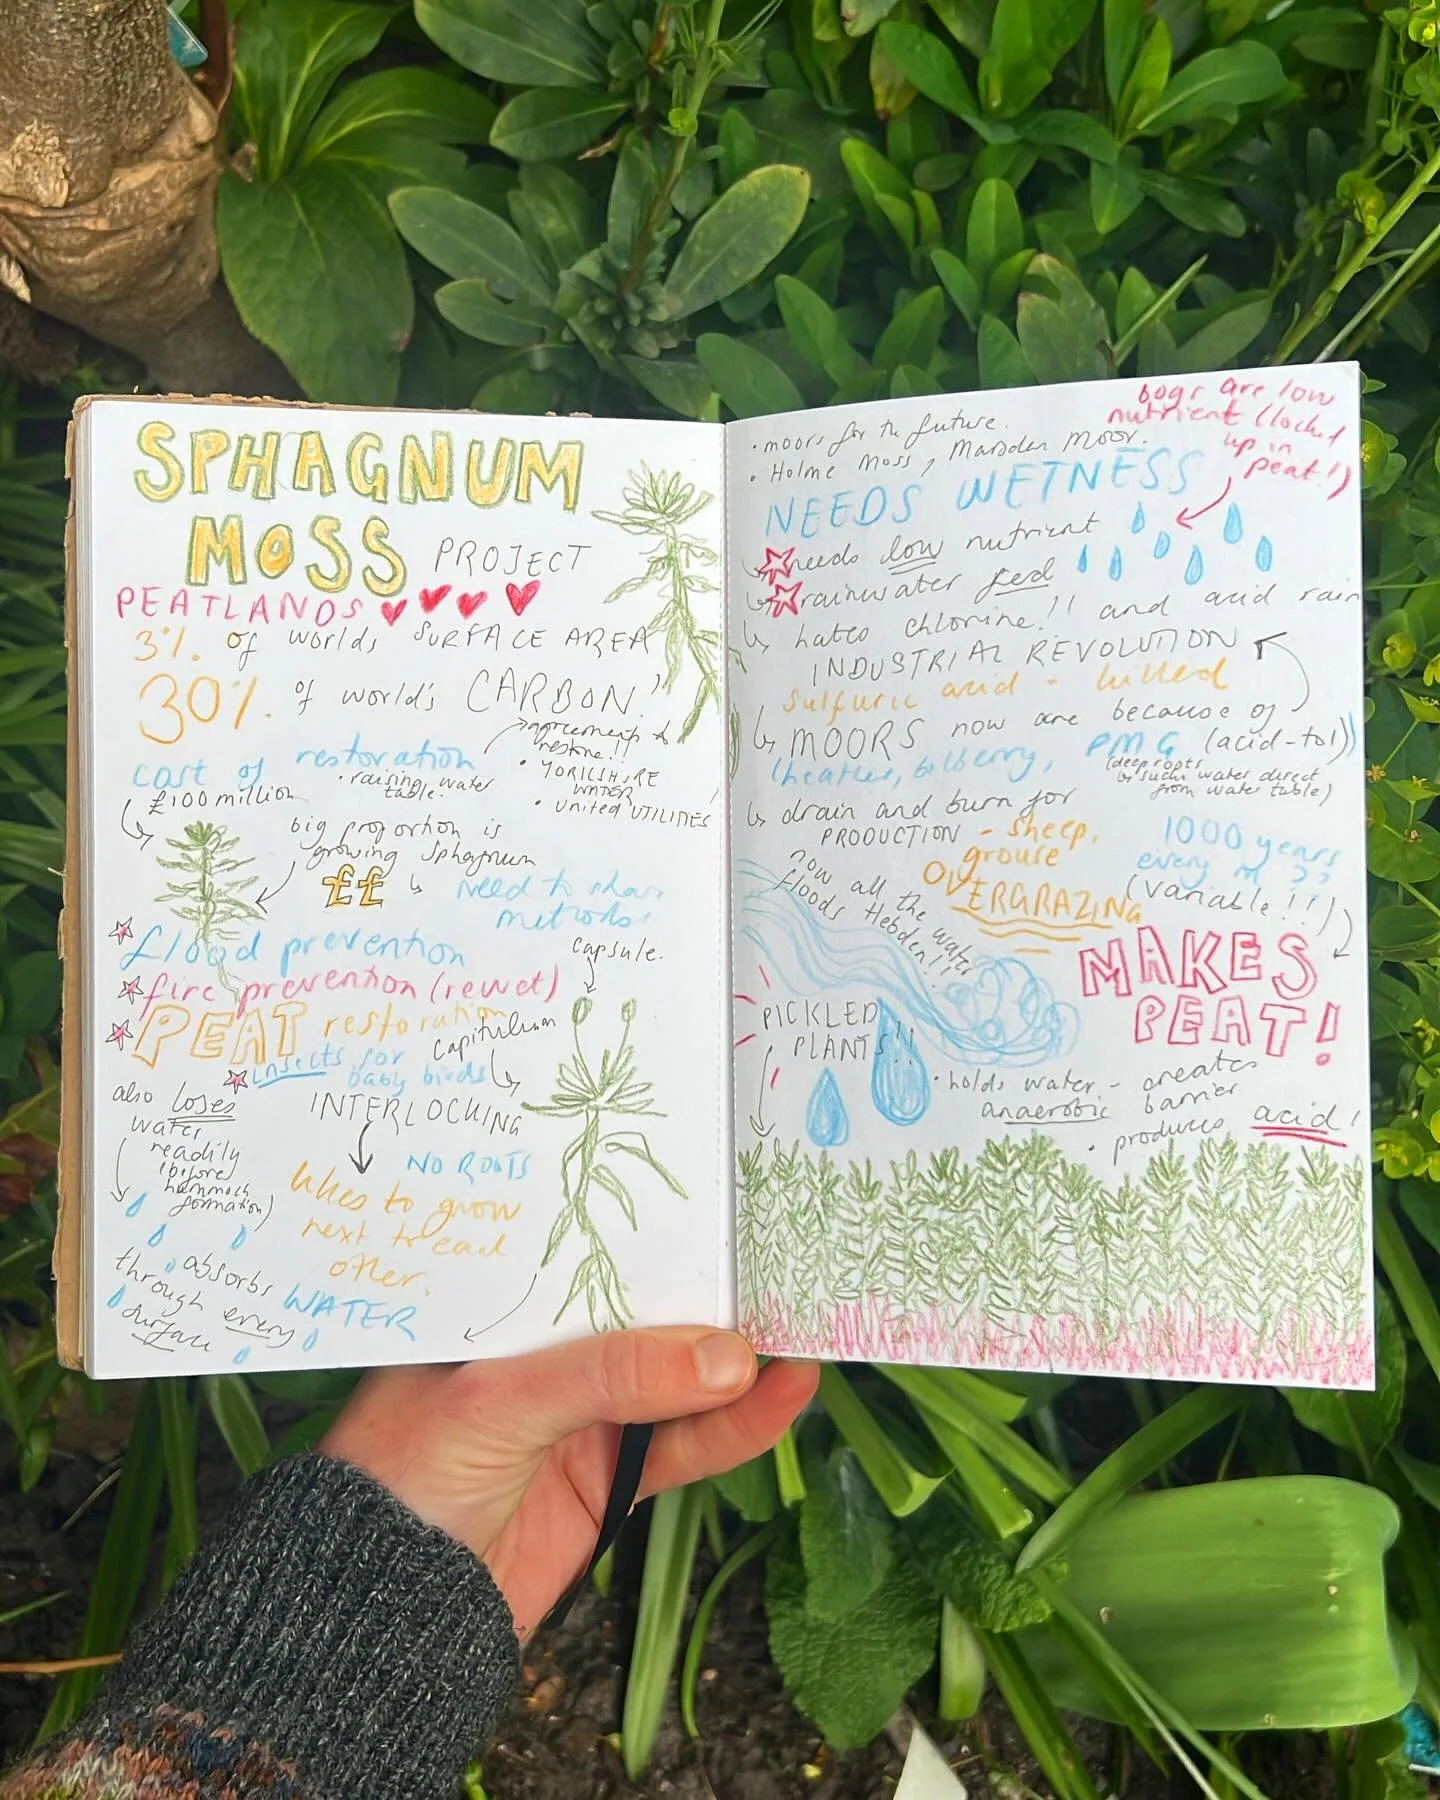 SPHAGNUM
MOSS PROJECT
PEATLANDS
3%. of worlds SURFACE AREA
30%. of world's CARBON!
cost of restoration
£100 million
• raising water
table.
agreements to
restore!!
• YORKSHIRE
WATER
• United UTILITIES
big proportion is
growing sphagnum
££
need to share
methods
flood prevention
fire prevention (rewet)
PEAT restoration
insects for
baby birds
capsule.
capitulum
also loses
water
readily
(before
hummock
formation)
INTERLOCKING
NO ROOTS
likes to grow
next to each
other.
absorbs WATER
through every
surface
• moors for the future.
• Holme Moss, Marsden Moor.
bogs are low
nutrient (locked
up in
peat!)
NEEDS WETNESS
needs low nutrient
rainwater fed
hates chlorine!! and acid rain
INDUSTRIAL REVOLUTION
sulfuric acid - killed
MOORS now are because of
(heather, bilberry, PMG (acid-tol))
(deep roots
suck water direct
from water table)
drain and burn for
PRODUCTION - sheep.
grouse
OVERGRAZING
now all the water
floods Hebden!!
1000 years
every m??
(variable!!)
MAKES
PEAT!
PICKLED
PLANTS!!
• holds water - creates
anaerobic barrier
• produces acid!